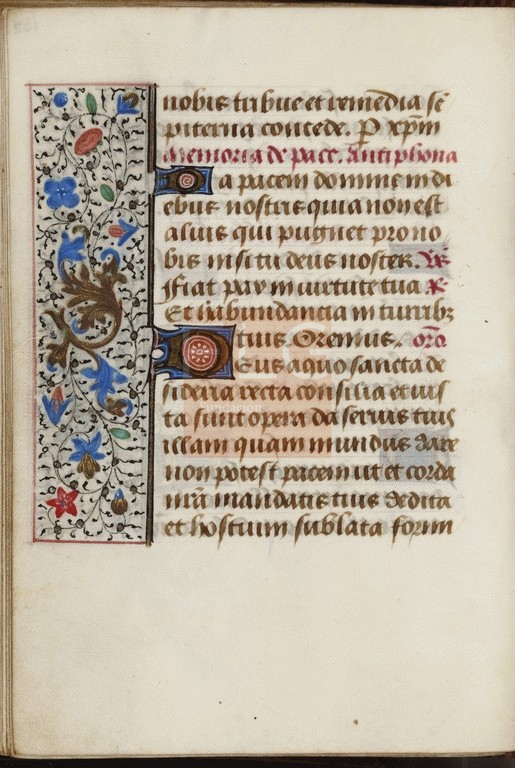 nobis tribue et remedia sē
piterna concede. P xp̄m
Memoria de pace. Antiphona
Da pacem domine in di
ebus nostris quia non est
alius qui pugnet pro no
bis nisi tu deus noster. V̶
Fiat pax in virtute tua R̶
Et in habundancia in turribꝫ
tuis. Oremus. oro̅.
Deus a quo sancta de
sideria recta consilia et ius
ta sunt opera da seruis tuis
illam quam mundus dare
non potest pacem ut et corda
nr̄a mandatis tuis dedita
et hostium sublata formi